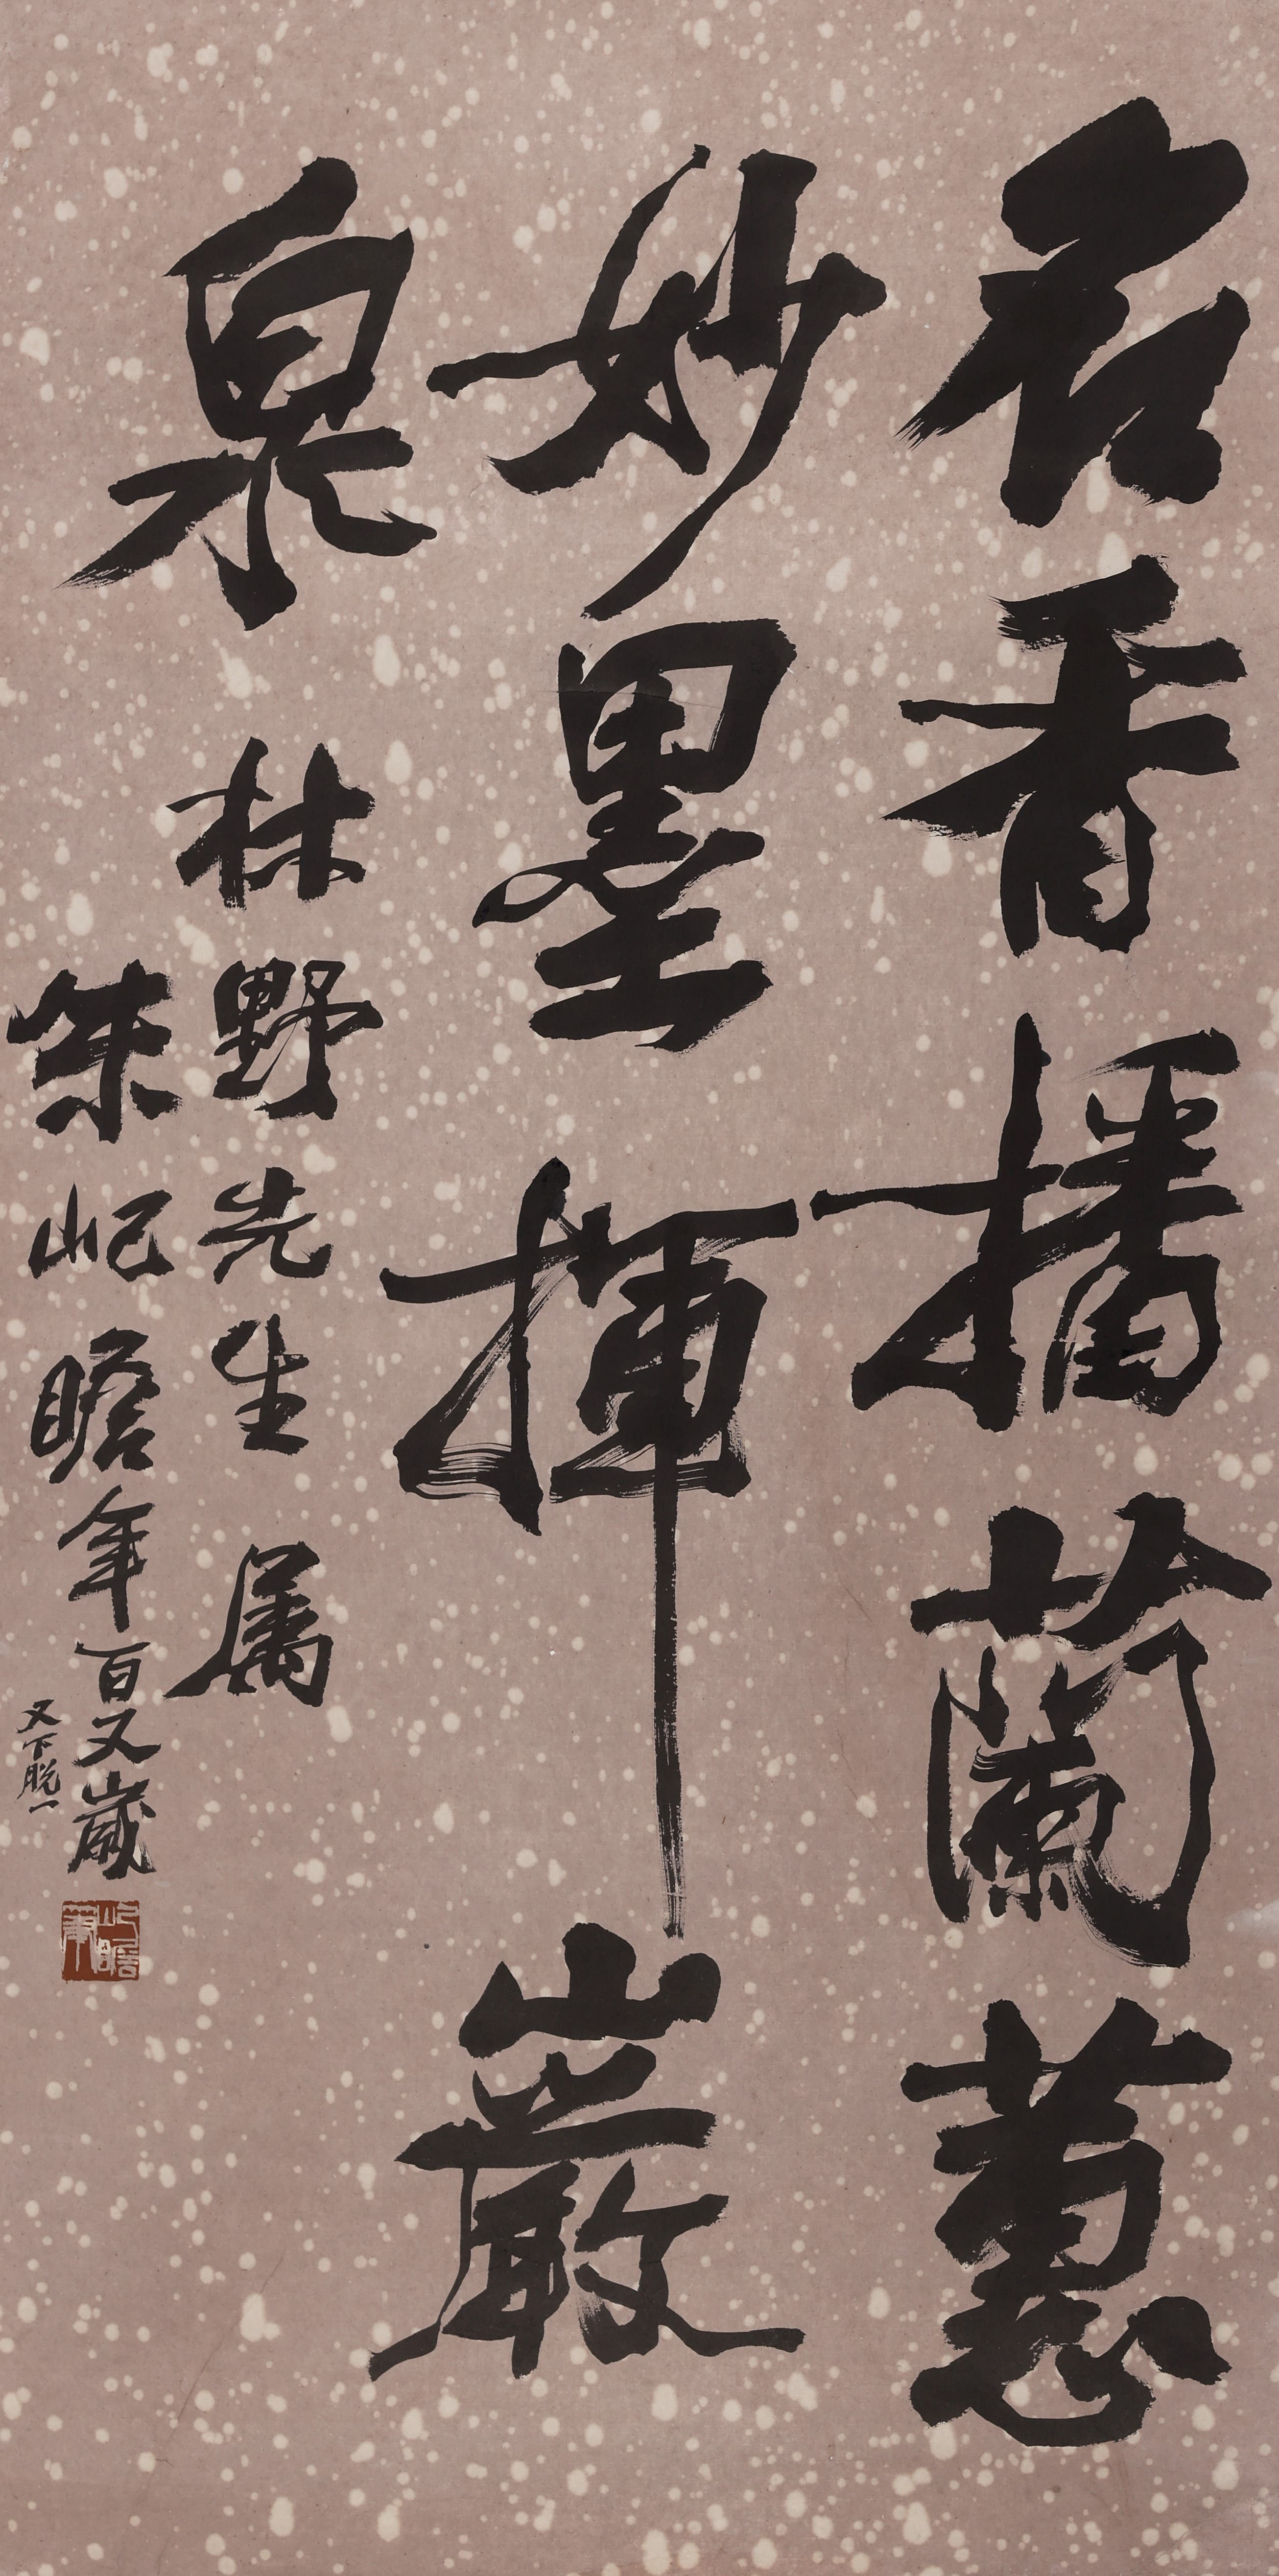 名香播蘭蕙
妙墨揮巖
泉
林野先生属
朱屺瞻年百又歲
又下脫一
屺瞻